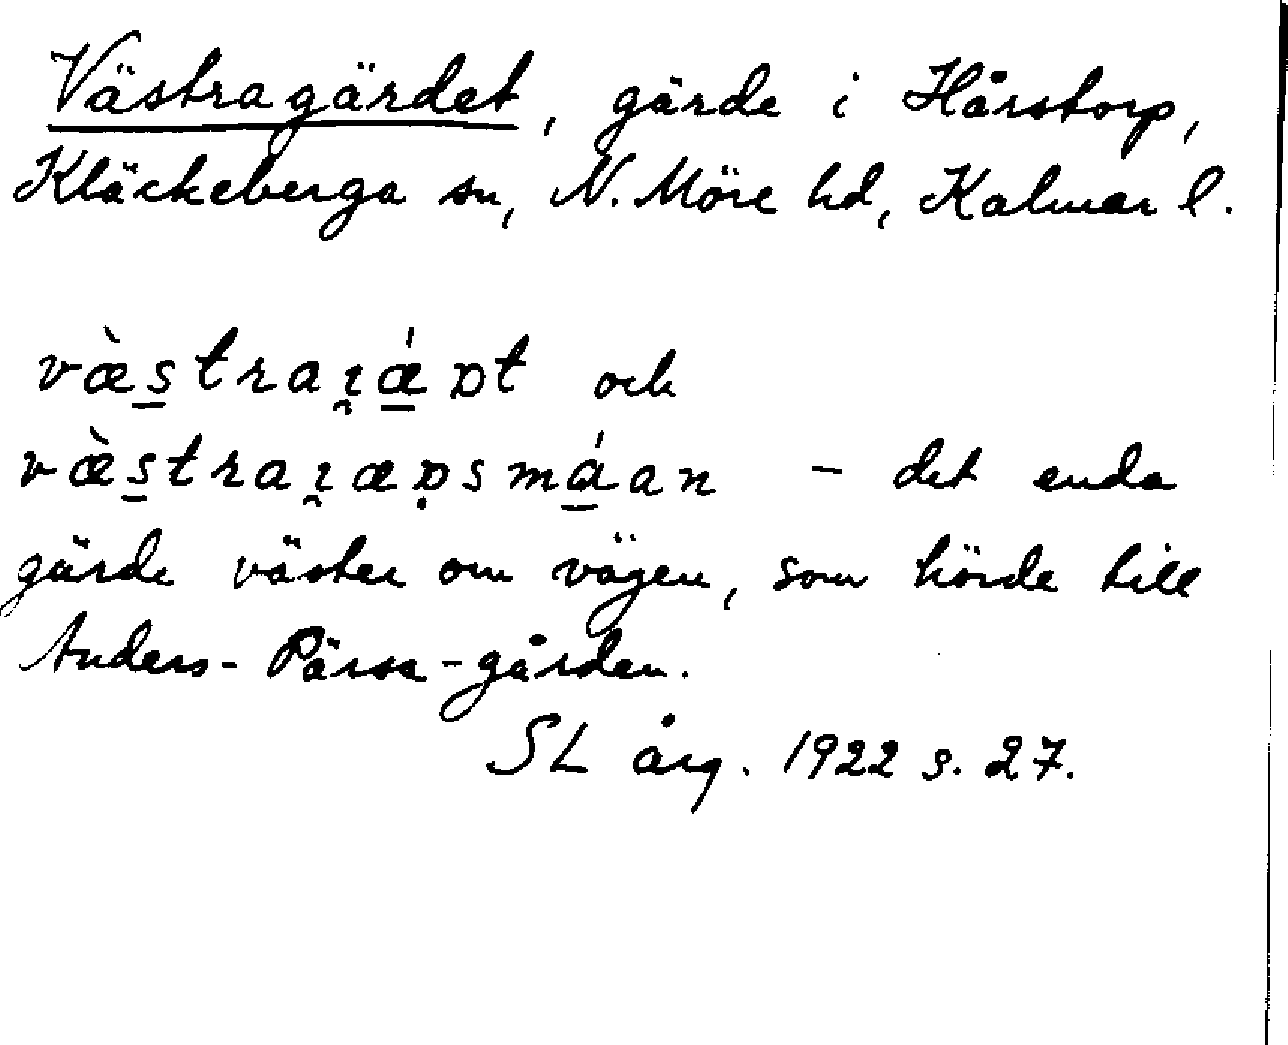 Västragärdet, gärde i Hårstorp,
Kläckeberga sn, N. Möre hd, Kalmar l.
och
– det enda
gärde väster om vägen, som hörde till
Anders-Pärsa-gården.
SL årg. 1922 s. 27.